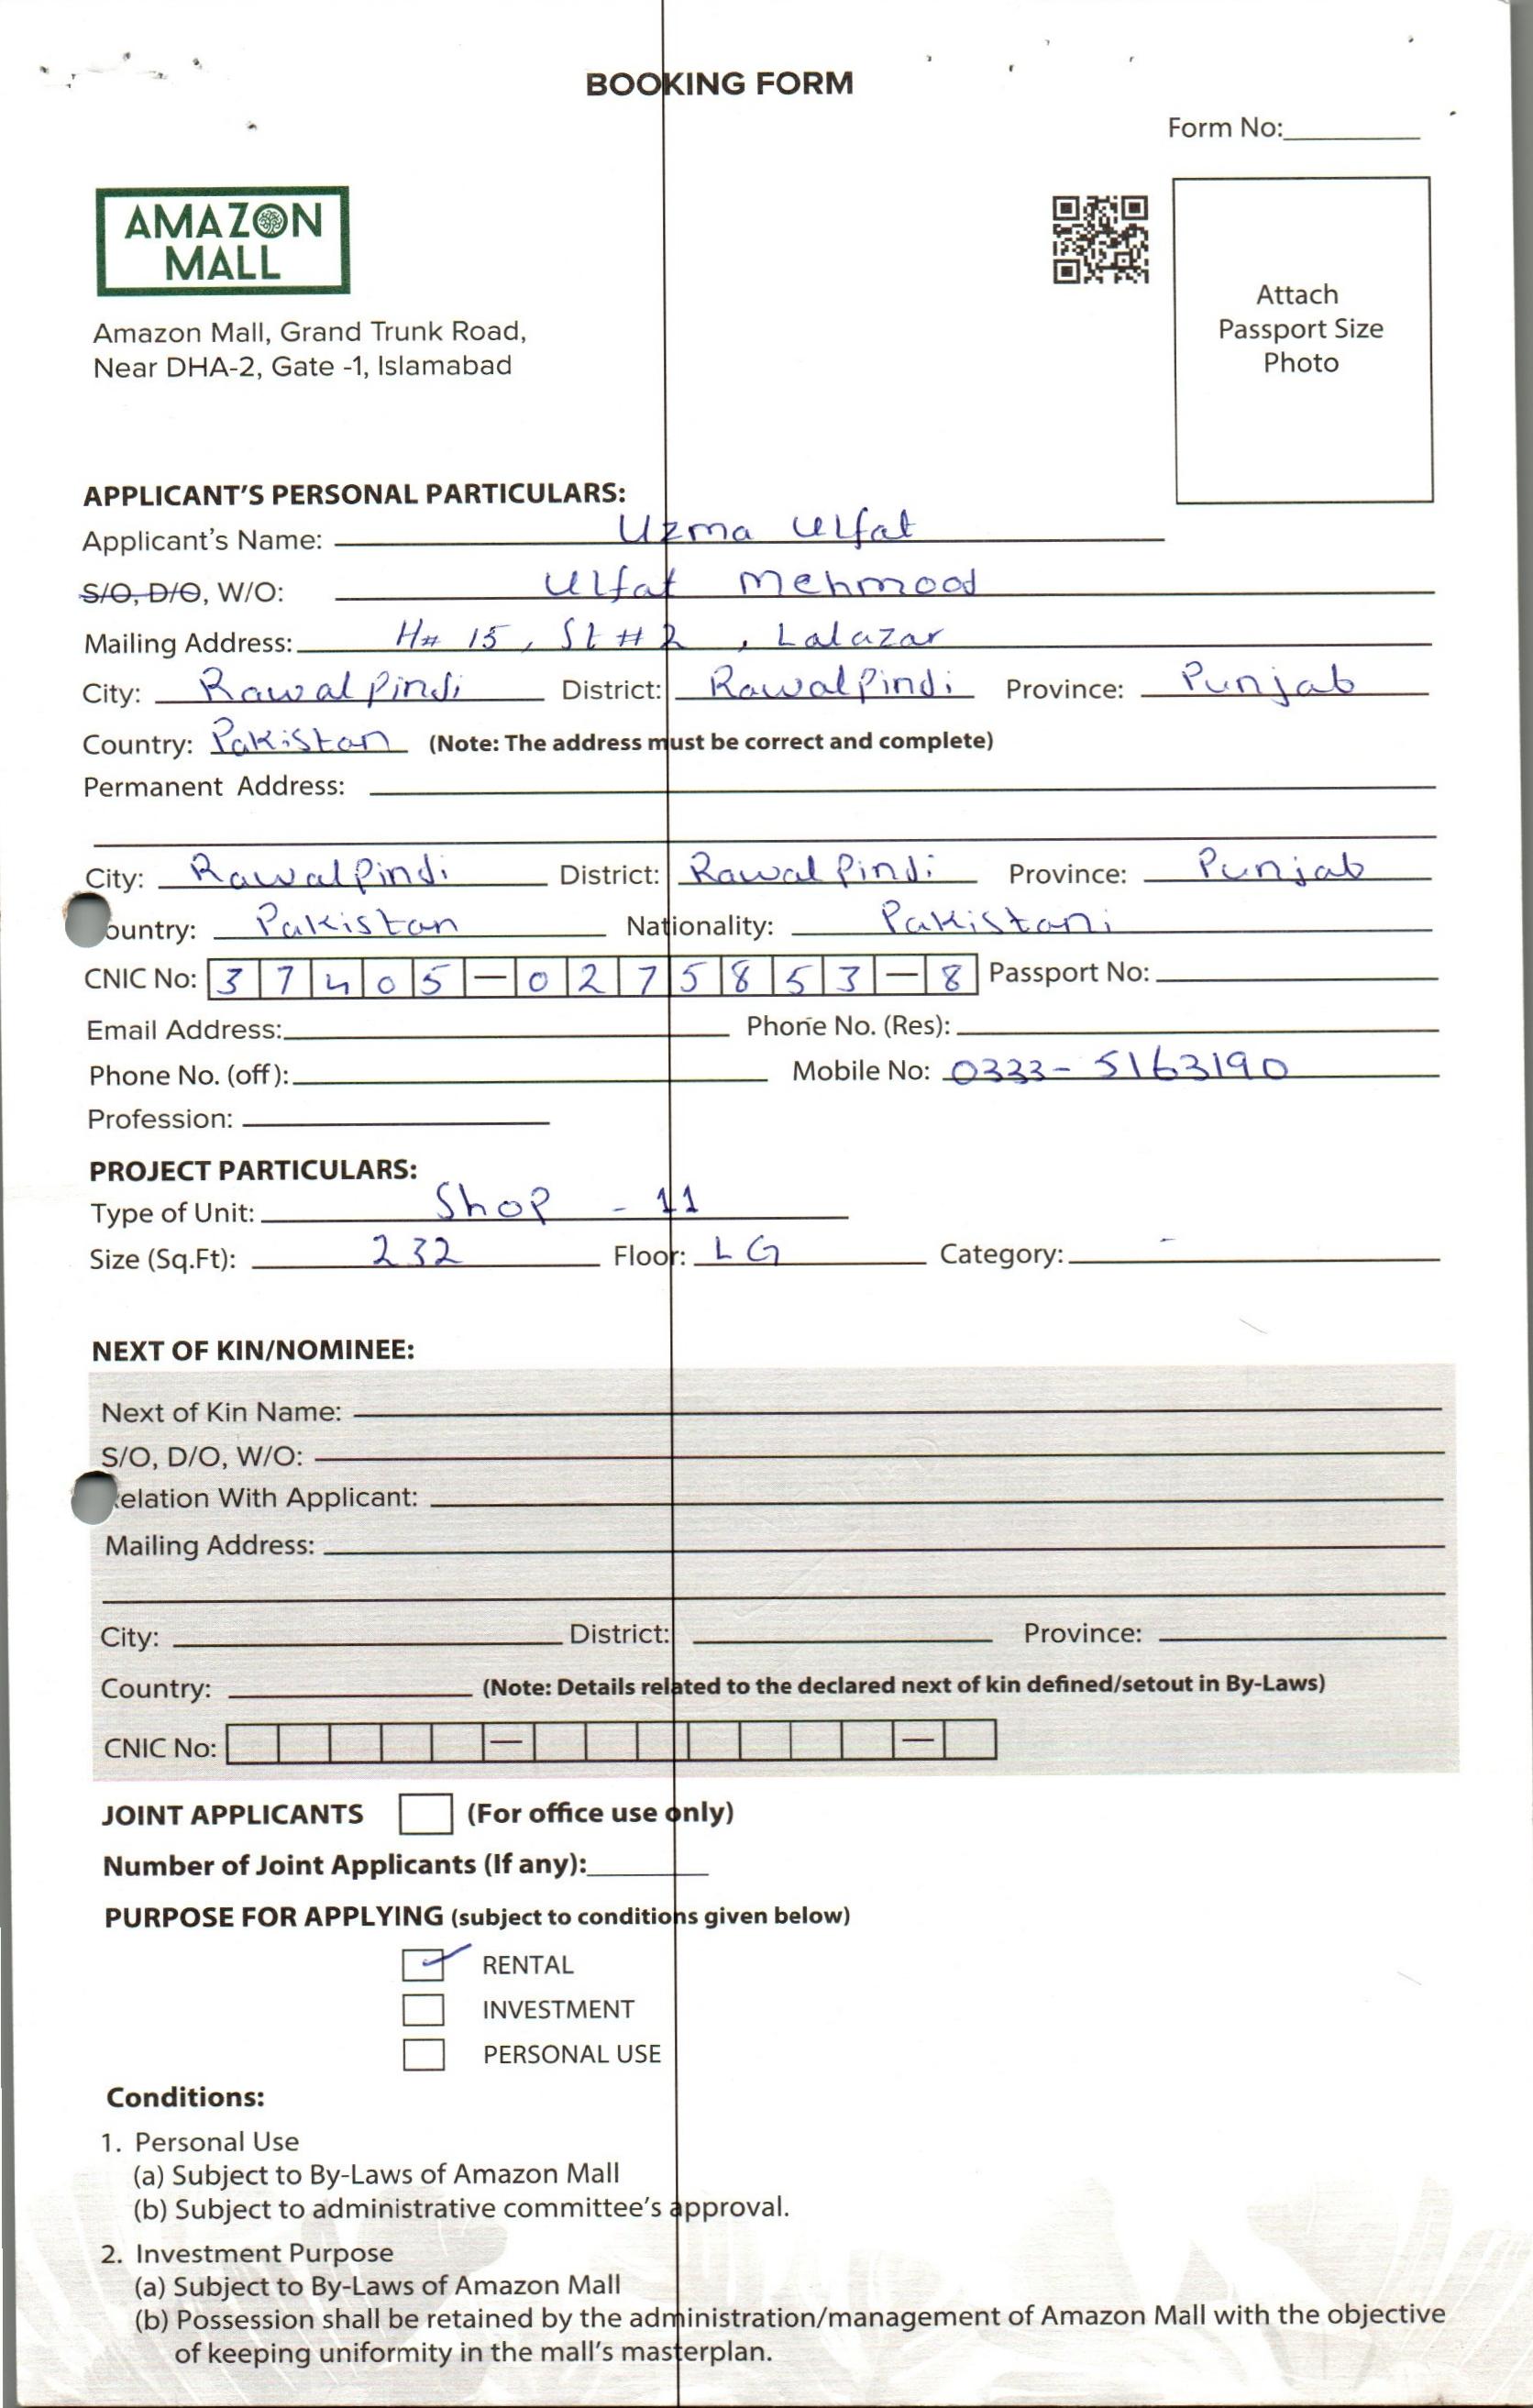 BOOKING FORM
Form No:
AMAZON
MALL
Amazon Mall, Grand Trunk Road,
Near DHA-2, Gate -1, Islamabad
Attach
Passport Size
Photo
APPLICANT'S PERSONAL PARTICULARS:
Applicant's Name: Uzma Ulfat
S/O, D/O, W/O: Ulfat Mehmood
Mailing Address: H# 15, St # 2, Lalazar
City: Rawalpindi District: Rawalpindi Province: Punjab
Country: Pakistan (Note: The address must be correct and complete)
Permanent Address:
City: Rawalpindi District: Rawalpindi Province: Punjab
ountry: Pakistan Nationality: Pakistani
CNIC No: 37405-0275853-8 Passport No:
Email Address: Phone No. (Res):
Phone No. (off): Mobile No: 0333-5163190
Profession:
PROJECT PARTICULARS:
Type of Unit: Shop - 11
Size (Sq.Ft): 232 Floor: LG Category: -
NEXT OF KIN/NOMINEE:
Next of Kin Name:
S/O, D/O, W/O:
elation With Applicant:
Mailing Address:
City: District: Province:
Country: (Note: Details related to the declared next of kin defined/setout in By-Laws)
CNIC No: — —
JOINT APPLICANTS (For office use only)
Number of Joint Applicants (If any):
PURPOSE FOR APPLYING (subject to conditions given below)
RENTAL
INVESTMENT
PERSONAL USE
Conditions:
1. Personal Use
(a) Subject to By-Laws of Amazon Mall
(b) Subject to administrative committee's approval.
2. Investment Purpose
(a) Subject to By-Laws of Amazon Mall
(b) Possession shall be retained by the administration/management of Amazon Mall with the objective
of keeping uniformity in the mall's masterplan.